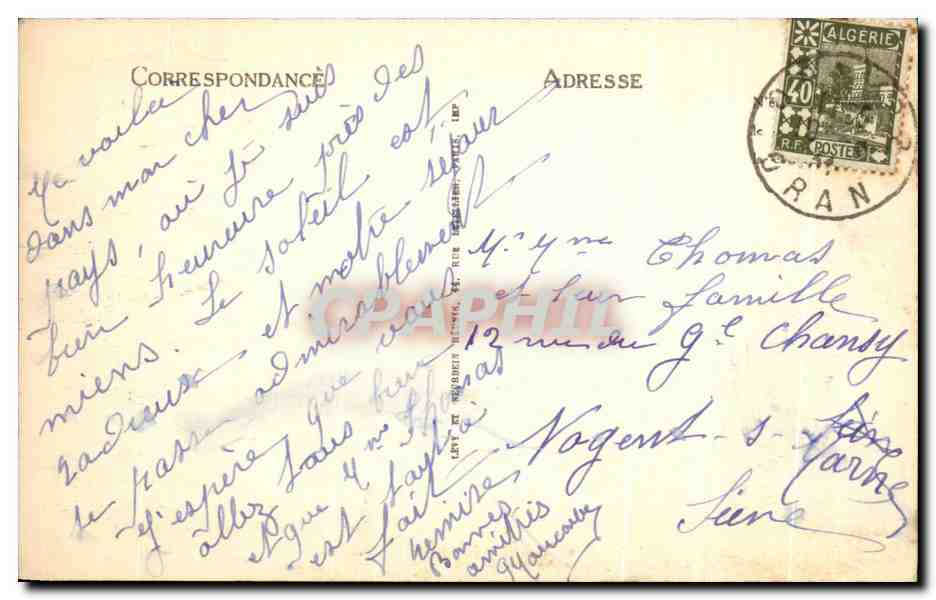 CORRESPONDANCE
Me voilà
dans mon cher
pays, où je suis
bien heureuse près des
miens. Le soleil est
radieux et notre séjour
se passe admirablement
J'espère que vous
allez tous bien
et que Mme Thomas
est tout à
fait remise
Bonnes
amitiés
LÉVY ET NEURDEIN RÉUNIS, 44, RUE LETELLIER, PARIS, IMP
CPAPHIL
ADRESSE
ALGÉRIE
40
R.F. POSTES
ORAN
Mr. Mme Thomas
et leur famille
12 rue du Gl Chansy
Nogent-s-
Marne
Seine